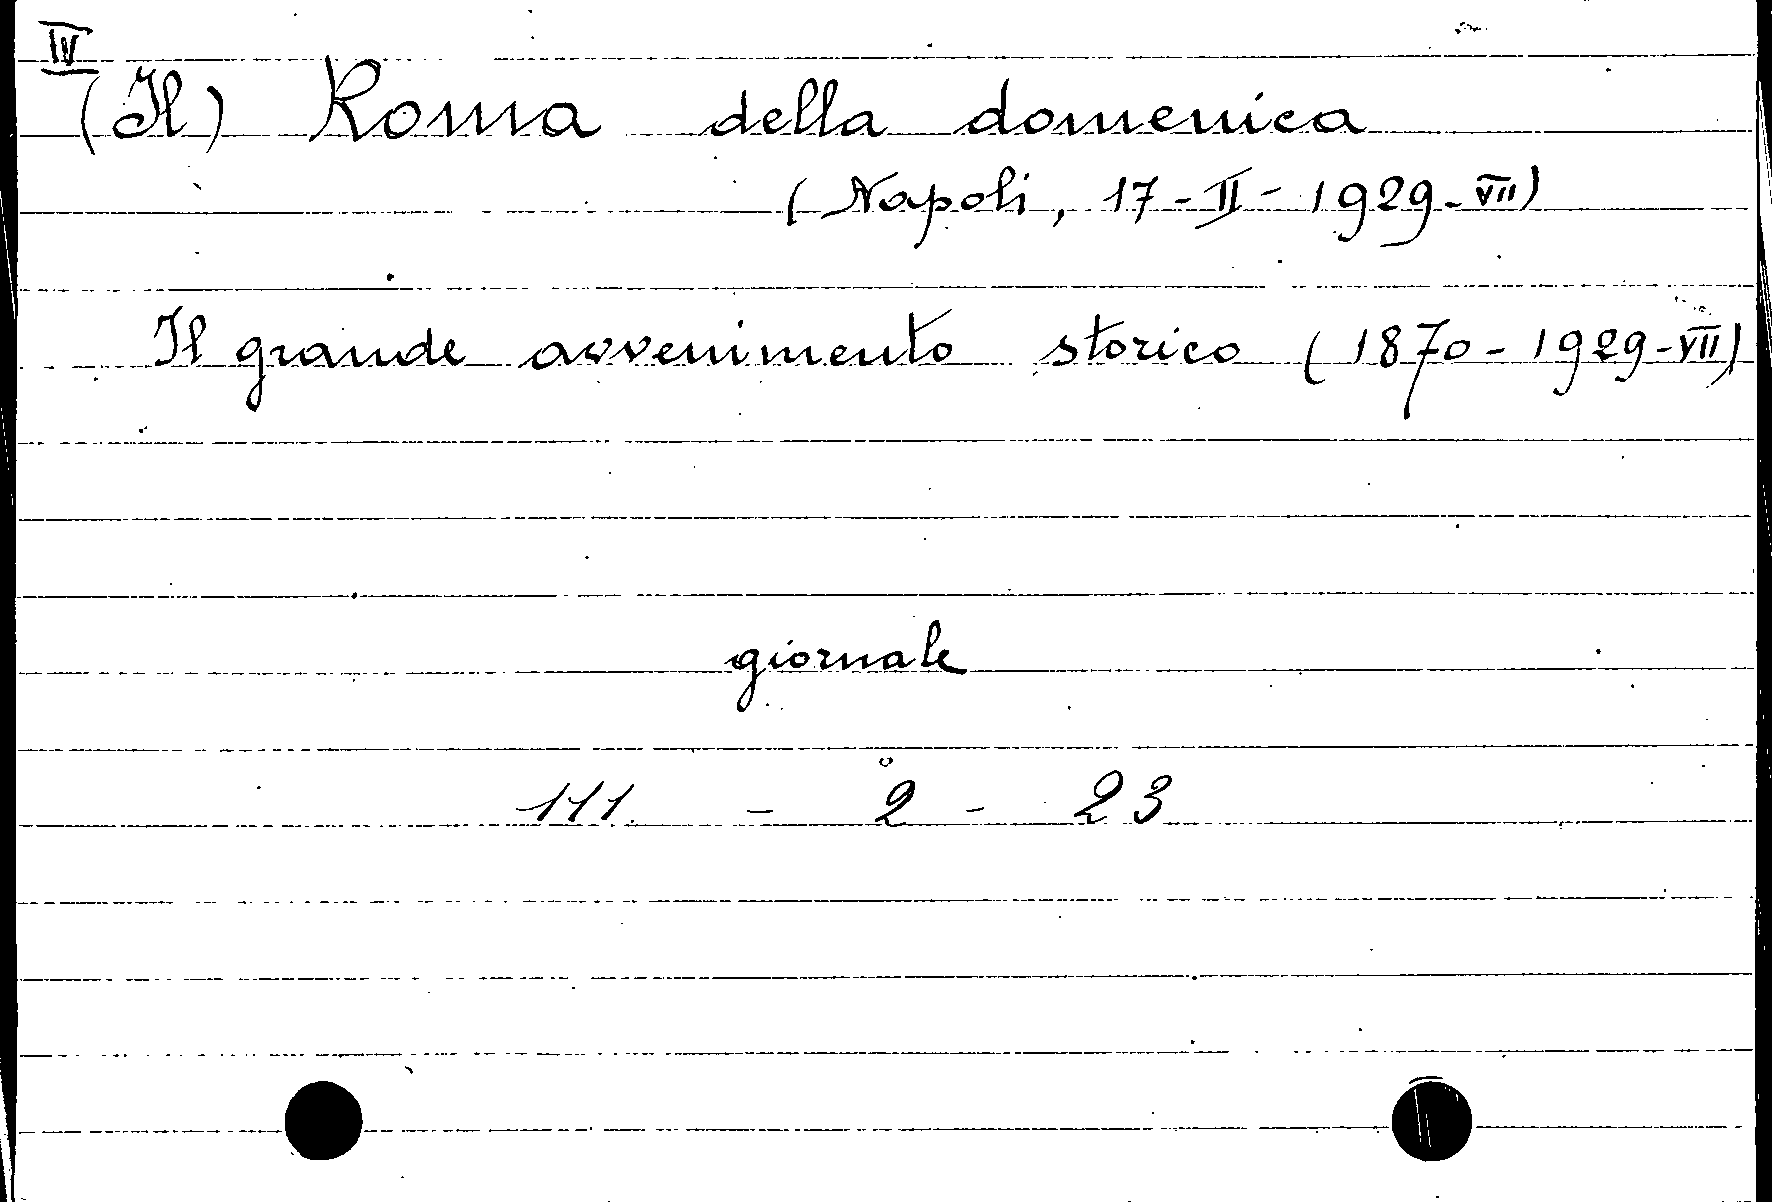 IV
(Il) Roma della domenica
(Napoli, 17-II-1929-VII)
Il grande avvenimento storico (1870-1929-VII)
giornale
111. - 2 - 23